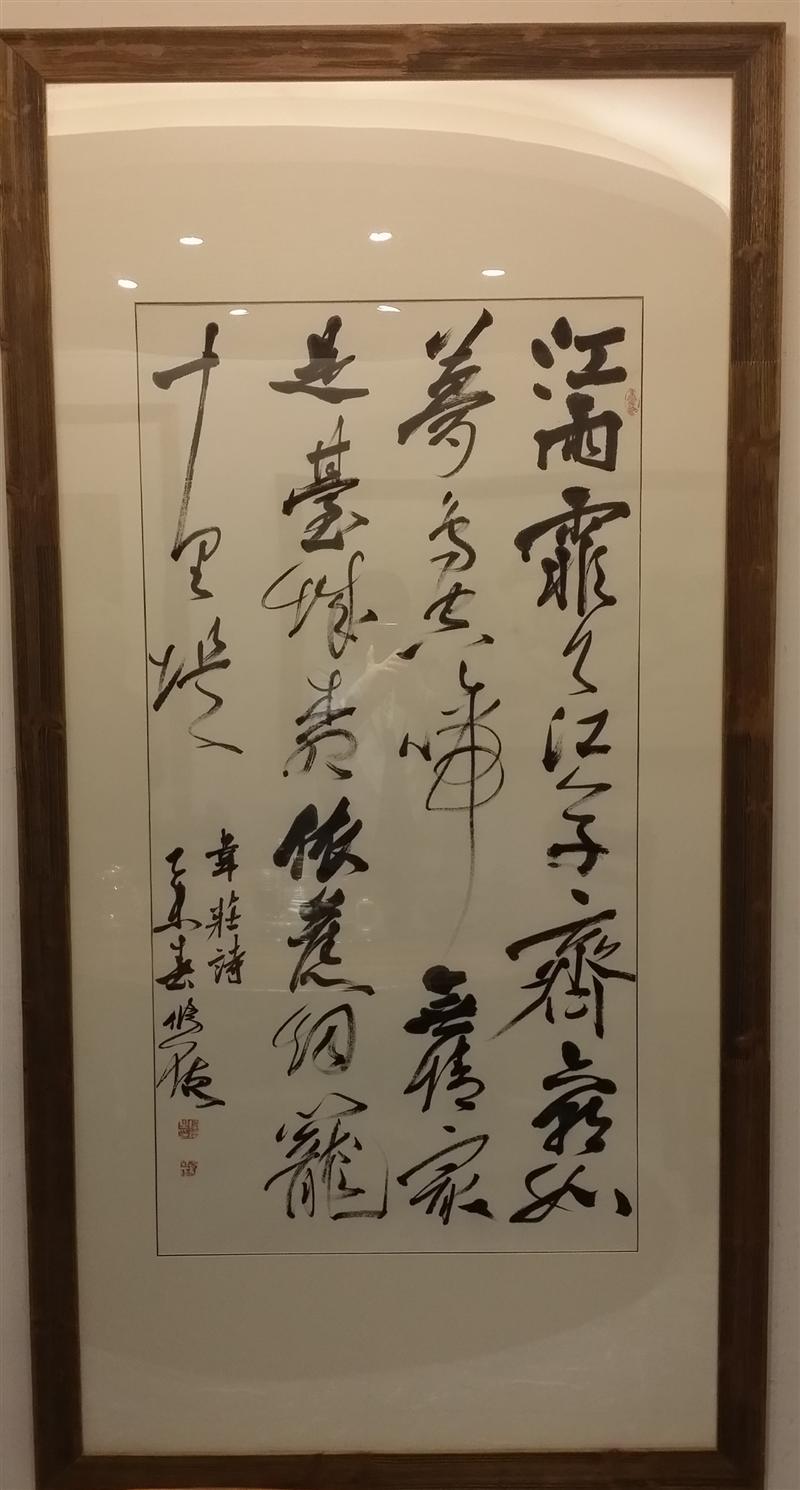 江雨霏霏江草齊六朝如
夢鳥空啼無情最
是臺城柳依舊烟籠
十里堤
韋莊詩
乙未春